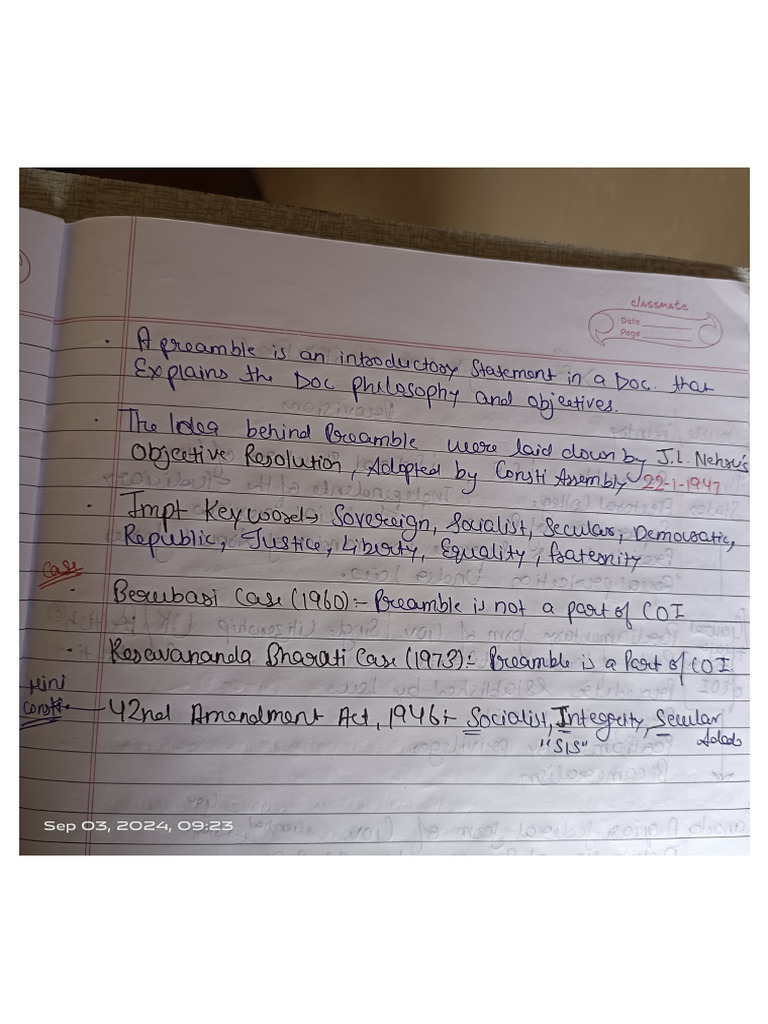 classmate
Date
Page
A preamble is an introductory Statement in a Doc. that
Explains the Doc philosophy and objectives.
The Idea behind Preamble were laid down by J.L. Nehru's
Objective Resolution, Adopted by Consti Assembly 22-1-1947
Impt Keywords Sovereign, Socialist, Secular, Democratic,
Republic, Justice, Liberty, Equality, fraternity
Case
Berubari Case (1960):- Preamble is not a part of COI
Kesavananda Bharati Case (1973):- Preamble is a Part of COI
Mini
Consti
42nd Amendment Act, 1946:- Socialist, Integrity, Secular
"SIS" Added
Sep 03, 2024, 09:23